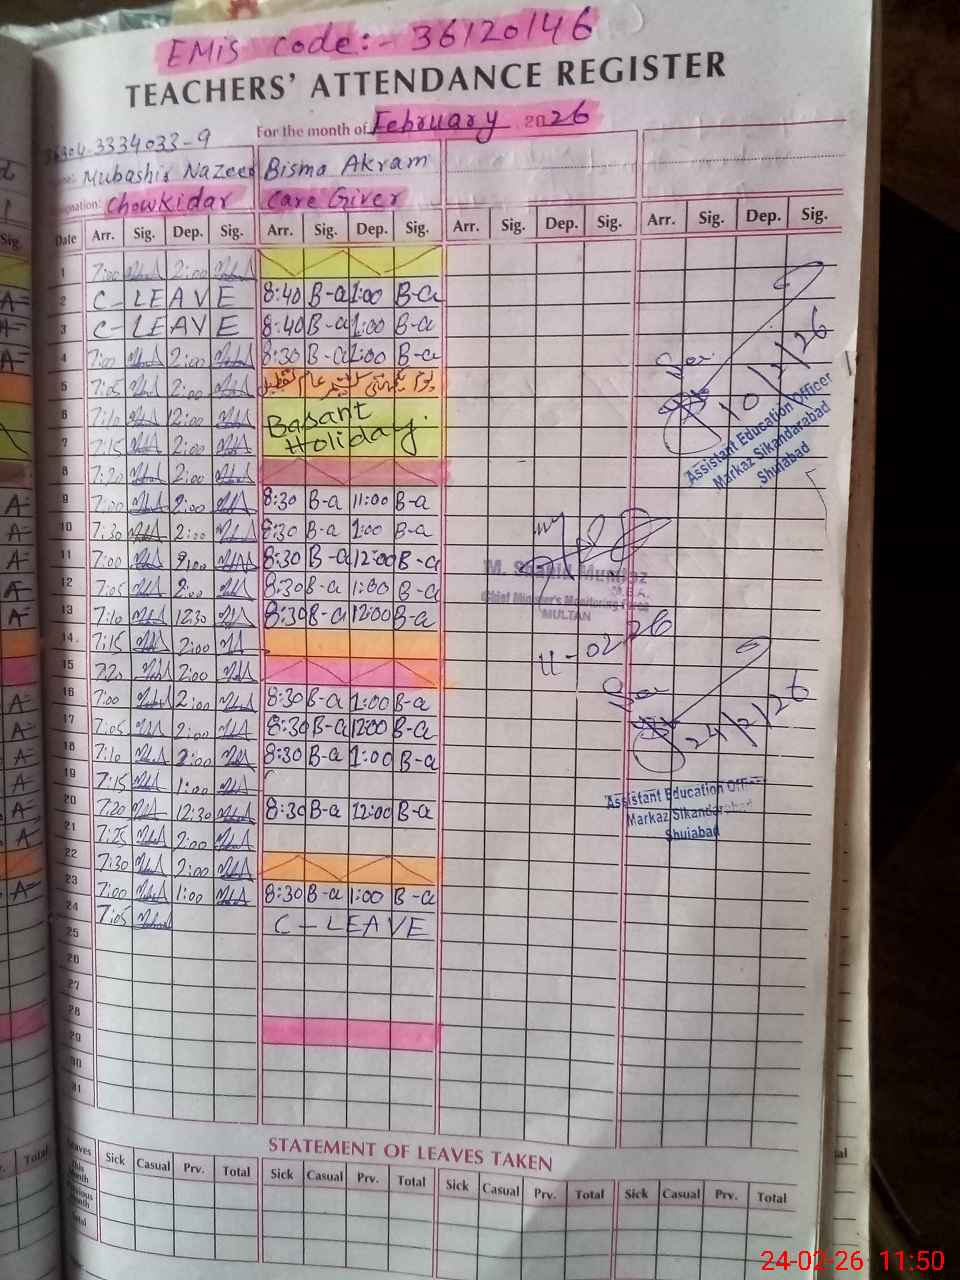 EMIS code:- 36120146
TEACHERS' ATTENDANCE REGISTER
For the month of February 2026
36304-3334033-9
Mubashir Nazeer Bisma Akram
Designation: Chowkidar Care Giver
Date Arr. Sig. Dep. Sig. Arr. Sig. Dep. Sig. Arr. Sig. Dep. Sig. Arr. Sig. Dep. Sig.
1 7:00 2:00
2 C-LEAVE 8:40 B-a 1:00 B-a
3 C-LEAVE 8:40 B-a 1:00 B-a
4 7:00 2:00 8:30 B-a 1:00 B-a
5 7:05 2:00 یوم یکجہتی کشمیر عام تعطیل
6 7:10 12:00 Basant
7 7:15 2:00 Holiday.
8 7:20 2:00
9 7:00 2:00 8:30 B-a 11:00 B-a
10 7:30 2:00 8:30 B-a 1:00 B-a
11 7:00 8:30 B-a 12:00 B-a
12 7:05 2:00 8:30 B-a 1:00 B-a
13 7:10 12:30 8:30 B-a 12:00 B-a
14 7:15 2:00
15 7:20 2:00
16 7:00 2:00 8:30 B-a 1:00 B-a
17 7:05 2:00 8:30 B-a 12:00 B-a
18 7:10 2:00 8:30 B-a 1:00 B-a
19 7:15 1:00
20 7:20 12:30 8:30 B-a 12:00 B-a
21 7:25 2:00
22 7:30 2:00
23 7:00 1:00 8:30 B-a 1:00 B-a
24 7:05 C-LEAVE
25
26
27
28
29
30
31
10/2/26
Assistant Education Officer
Markaz Sikandarabad
Shujabad
M. Shahid Mumtaz
Chief Minister's Monitoring Force
MULTAN
11-02-26
24/2/26
Assistant Education Officer
Markaz Sikandarabad
Shujabad
STATEMENT OF LEAVES TAKEN
Leaves Sick Casual Prv. Total Sick Casual Prv. Total Sick Casual Prv. Total Sick Casual Prv. Total
this Month
Previous Month
Total
24-02-26 11:50